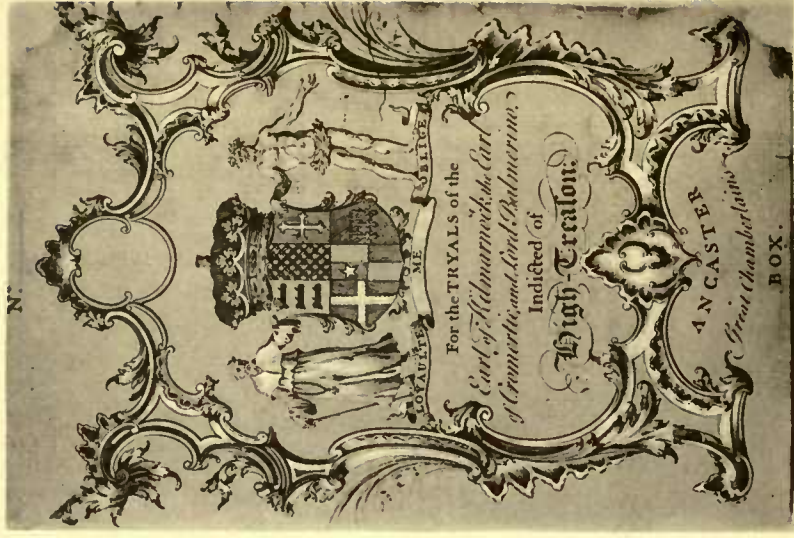 N.º
LOYAULTE ME OBLIGE
For the TRYALS of the
Earl of Kilmarnock, the Earl
of Cromertie, and Lord Balmerino,
Indicted of
High-Treaſon.
ANCASTER
Great Chamberlains
BOX.